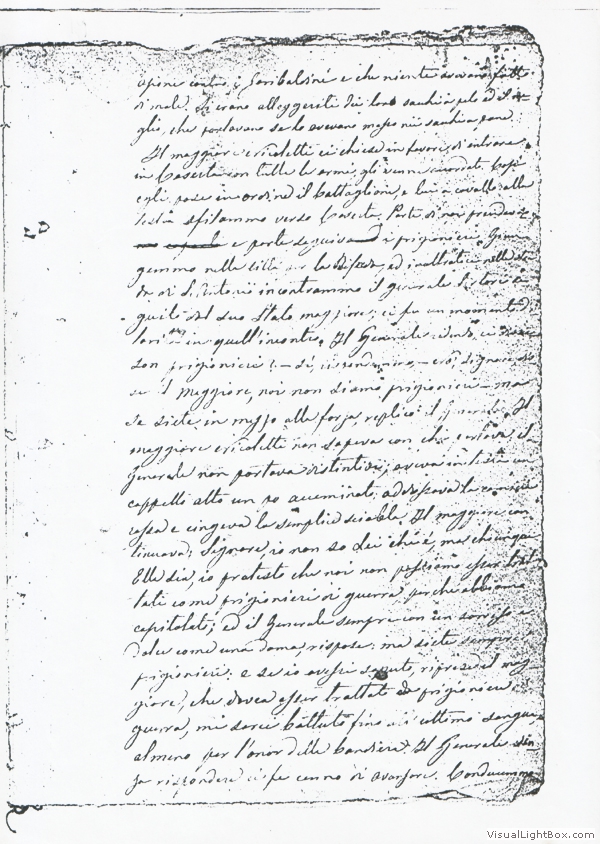 opine contro i Garibaldini e che niente avevano fatto
di male. Si erano alleggeriti dei loro sacchi a pelo ed
glio, che portavano se lo avevano messo nei sacchi a pane.
Il maggiore Nicoletti ci chiese in favore, di entrare
in Caserta con tutte le armi, gli venne accordato. Così
egli, pose in ordine il battaglione, e lui a cavallo alla
testa sfilammo verso Caserta. Parte di noi
e parte seguiva i prigionieri.
gemmo nella città per la ed inoltrati nella
da di S. Antonio incontrammo il generale Sirtori
guito dal suo Stato maggiore; ci fu un momento di
in quell'incontro. Il Generale
son prigionieri? — sì, — signore
se il Maggiore, noi non siamo prigionieri — ma
se siete in mezzo alla forza, replicò il Generale. Il
maggiore Nicoletti non sapeva con chi parlava, il
Generale non portava distintivi, aveva in testa un
cappello alto un po accuminato, addossava la camicia
rossa e cingeva la semplice sciabla. Il maggiore con
tinuava: Signore, io non so Lei chi è, ma chiunque
Ella sia, io protesto che noi non possiamo esser trat
tati come prigionieri di guerra, perche abbiamo
capitolato; ed il Generale sempre con un sorriso
dolce come una dama, rispose: ma siete sempre
prigionieri: e se io avessi saputo, riprese il mag
giore, che dovea esser trattato da prigioniero
guerra, mi sarei battuto fino all'ultimo sangue
almeno per l'onor della bandiera. Il Generale sen
za rispondere ci fe cenno di avanzare. Conducemmo
VisualLightBox.com